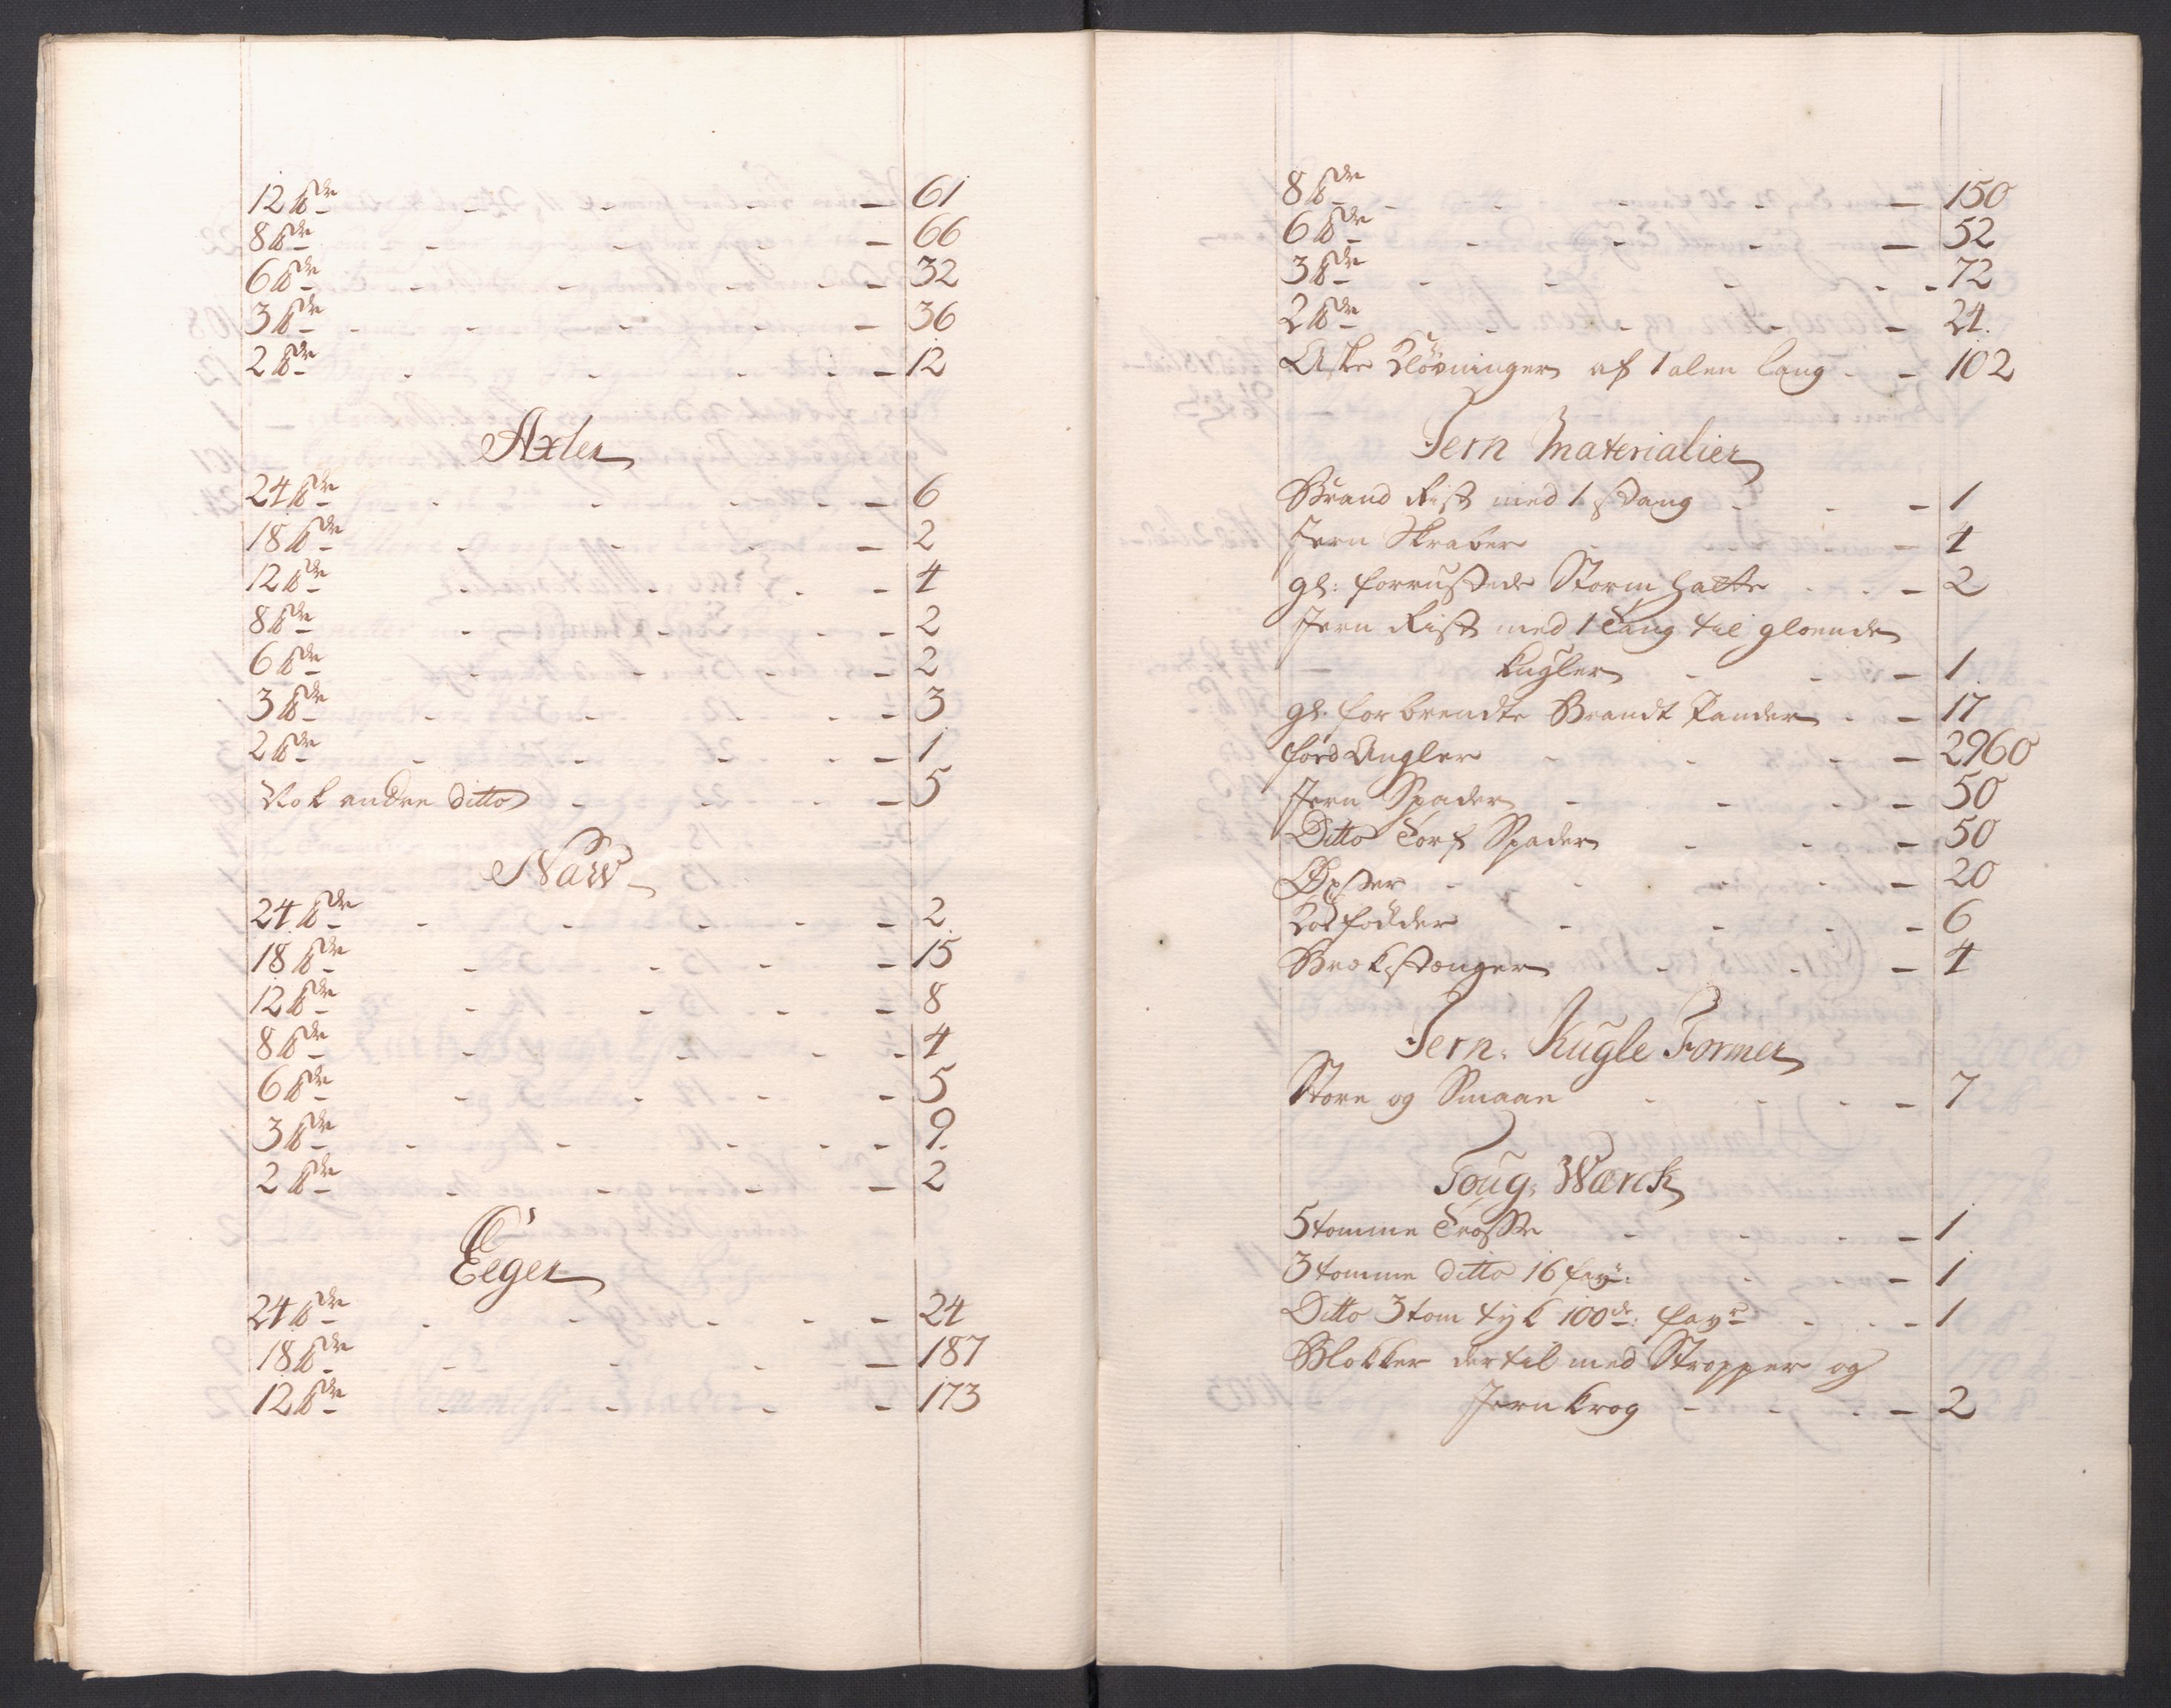 12 ℔de - - - - 61
8 ℔de - - - - 66
6 ℔de - - - - 32
3 ℔de - - - - - 36
2 ℔de - - - - - 12
Axler
24 ℔de - - - - - 6
18 ℔de - - - - 2
12 ℔de - - - - 4
8 ℔de - - - - 2
6 ℔de - - - - 2
3 ℔de - - - - - 3
2 ℔de - - - - - 1
andre ditto - - - - 5
Naw
24 ℔de - - - - - 2
18 ℔de - - - - 15
12 ℔de - - - - 8
8 ℔de - - - - 4
6 ℔de - - - - 5
3 ℔de - - - - - 9.
2 ℔de - - - - 2
Eeger
24 ℔de - - - - - 24
18 ℔de - - - - 187
12 ℔de - - - - 173
8 ℔de - - - - - 150
6 ℔de - - - - 52
3 ℔de - - - - - 72
2 ℔de - - - - 24.
Aske Kløvninger af 1 alen lang - - 102
Jern Materialier
Brand Rist med 1 stang - - - 1
Jern Skraber - - - 4
gl: forrustede Storm hatte - - - 2
Jern Rist med 1 Tang til gloende
kugler - - - 1.
gl. forbrendte Brandt Pander - - 17
fod Angler - - - - 2960
Jern Spader - - - - 50
Ditto Torf Spader - - - 50
Øxser - - - - - 20
Koefødder - - - - 6
Brækstænger - - - 4
Jern. Kugle Former
Store og Smaae - - - - 7
Toug, Wærck
5 tomme Trosse - - - - 1
3 tomme ditto 16 fau: - - - 1
Ditto 3 tom tyk 100de: favr - - - 1
Blokker dertil med Stropper og
Jernkrog - - - - 2